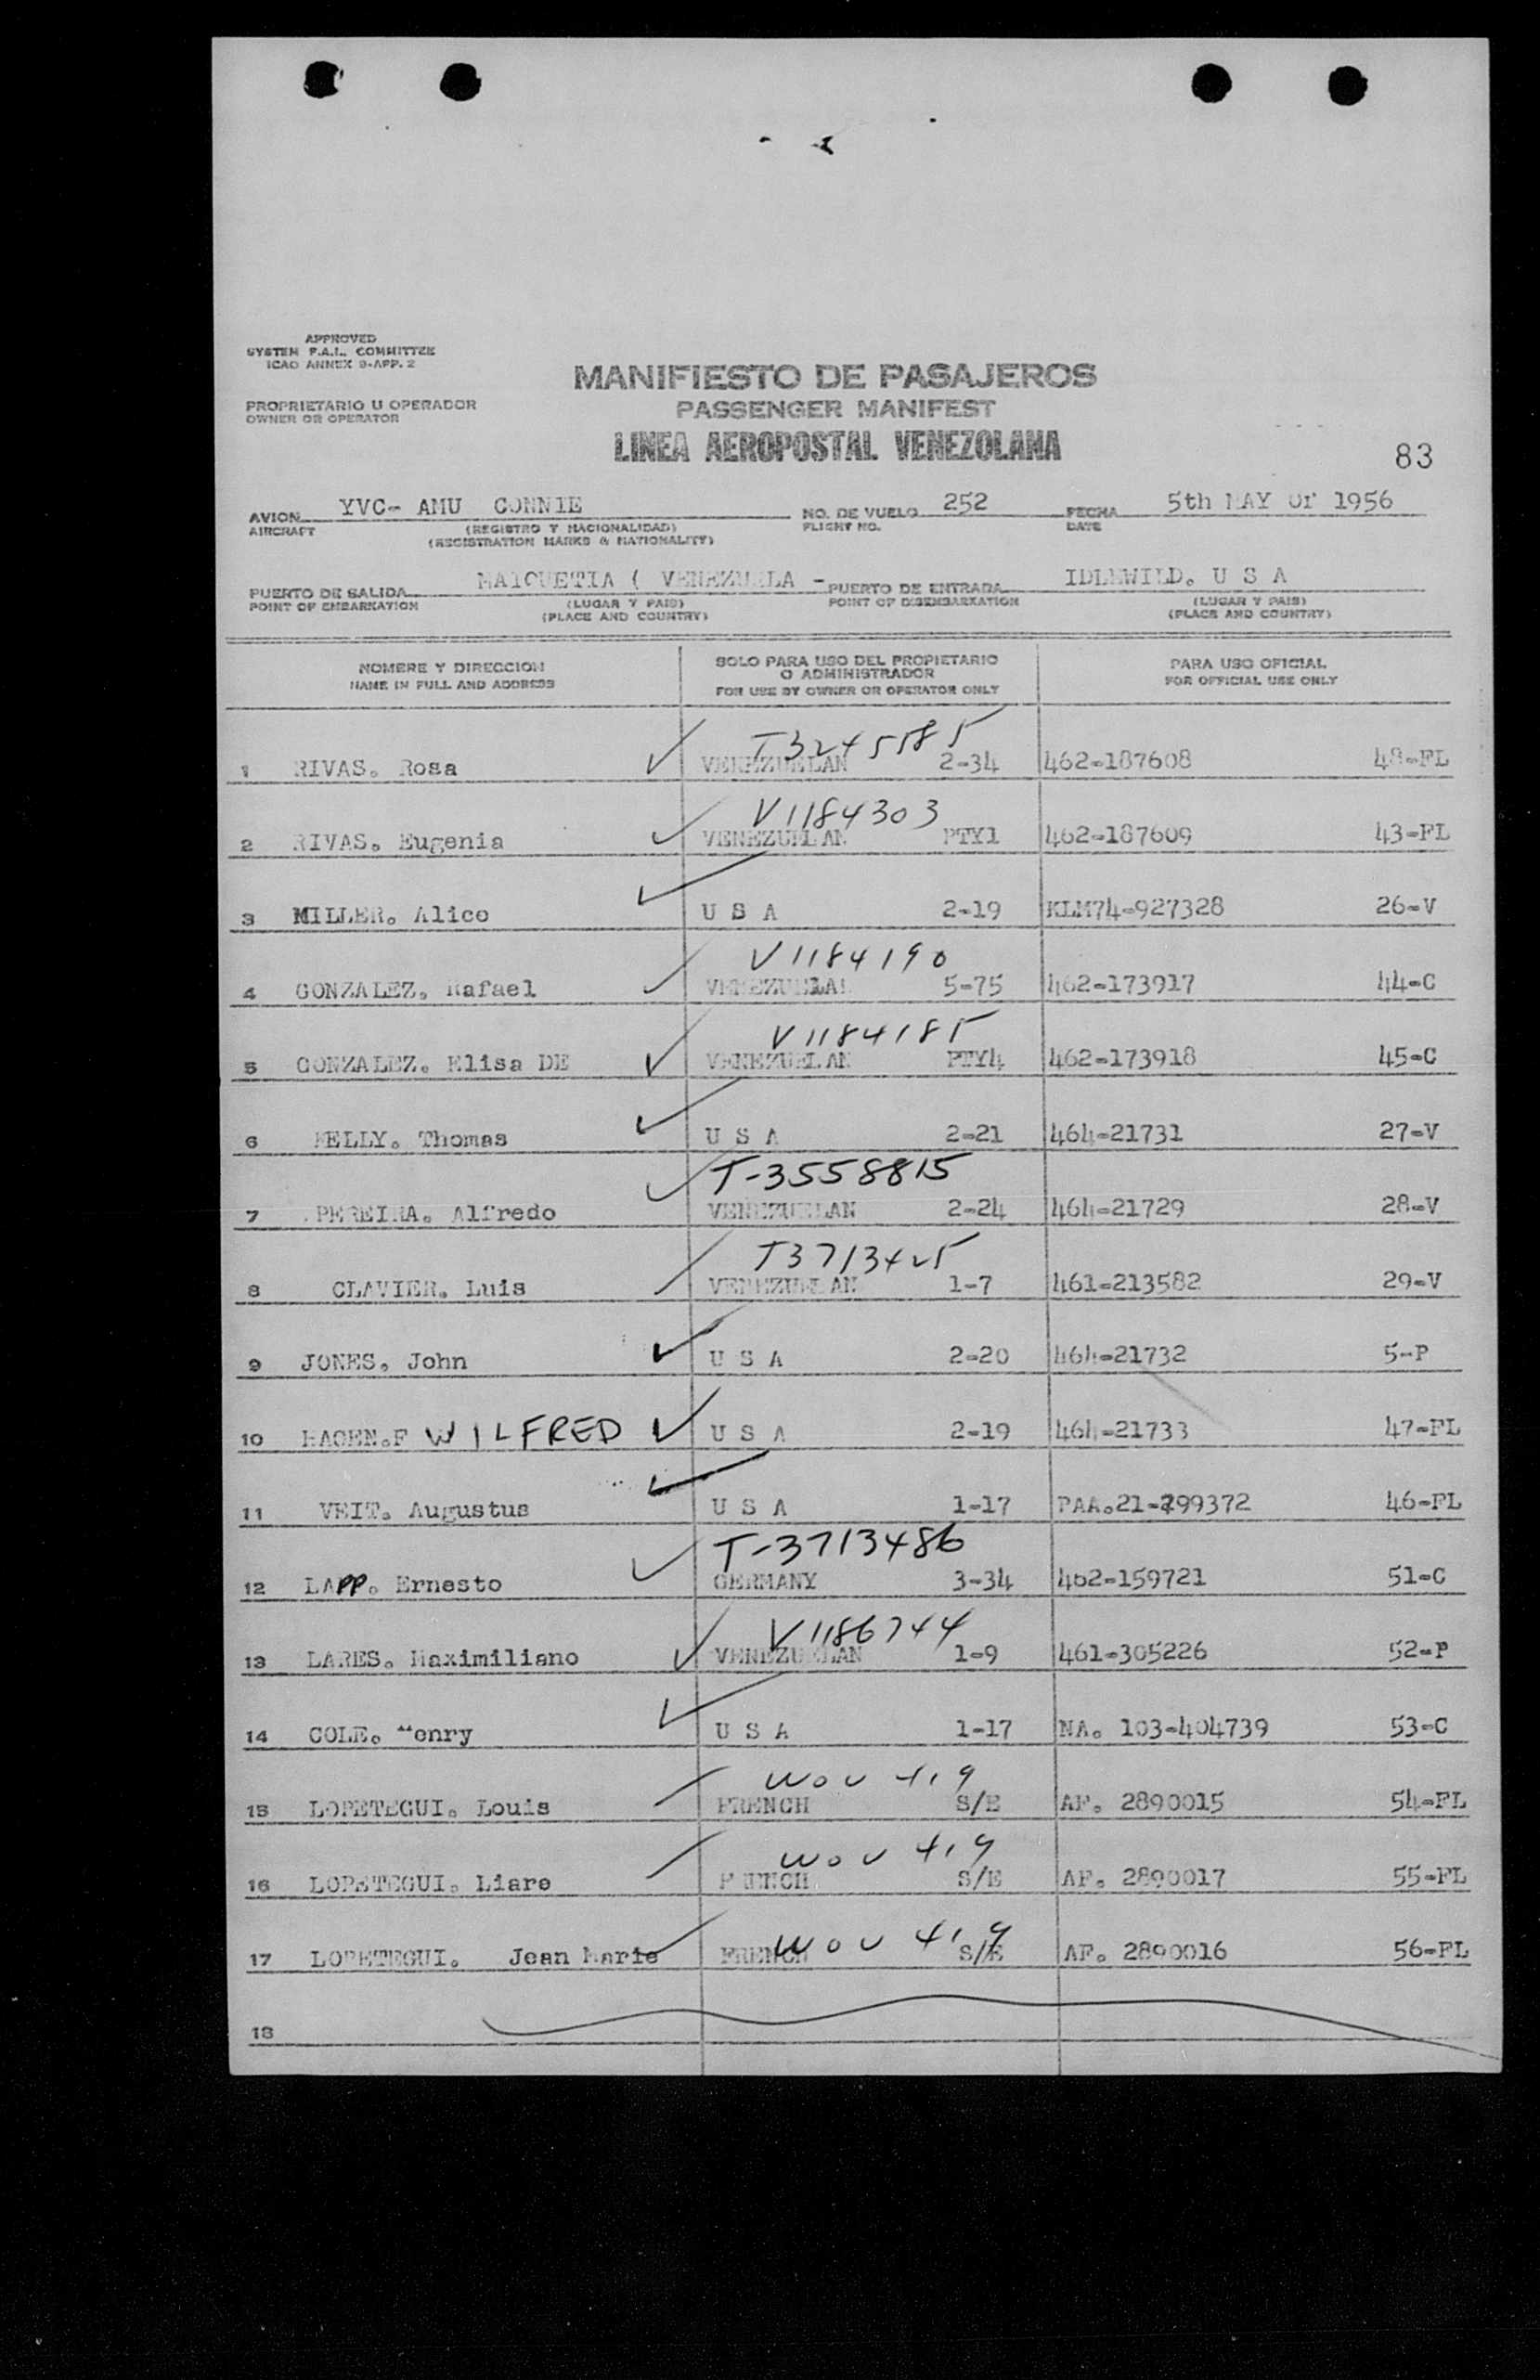 APPROVED
SYSTEM F.A.L. COMMITTEE
ICAO ANNEX 9-APP. 2
MANIFIESTO DE PASAJEROS
PROPRIETARIO U OPERADOR
OWNER OR OPERATOR
PASSENGER MANIFEST
LINEA AEROPOSTAL VENEZOLANA
83
AVION YVC- AMU CONNIE NO. DE VUELO 252 FECHA 5th MAY OF 1956
AIRCRAFT (REGISTRO Y NACIONALIDAD) FLIGHT NO. DATE
(REGISTRATION MARKS & NATIONALITY)
PUERTO DE SALIDA MAIQUETIA ( VENEZUELA - PUERTO DE ENTRADA IDLEWILD. U S A
POINT OF EMBARKATION (LUGAR Y PAIS) POINT OF DISEMBARKATION (LUGAR Y PAIS)
(PLACE AND COUNTRY) (PLACE AND COUNTRY)
NOMBRE Y DIRECCION SOLO PARA USO DEL PROPIETARIO PARA USO OFICIAL
O ADMINISTRADOR
NAME IN FULL AND ADDRESS FOR USE BY OWNER OR OPERATOR ONLY FOR OFFICIAL USE ONLY
T3245585
1 RIVAS. Rosa VENEZUELAN 2-34 462-187608 48-FL
V1184303
2 RIVAS. Eugenia VENEZUELAN PTY1 462-187609 43-FL
3 MILLER. Alice U S A 2-19 KLM74-927328 26-V
V1184190
4 GONZALEZ. Rafael VENEZUELAN 5-75 462-173917 44-C
V1184185
5 GONZALEZ. Elisa DE VENEZUELAN PTY4 462-173918 45-C
6 Thomas U S A 2-21 464-21731 27-V
T-3558815
7 PEREIRA. Alfredo VENEZUELAN 2-24 464-21729 28-V
T3713425
8 CLAVIER. Luis VENEZUELAN 1-7 461-213582 29-V
9 JONES. John U S A 2-20 464-21732 5-P
10 HAGEN.F WILFRED U S A 2-19 464-21733 47-FL
11 VEIT. Augustus U S A 1-17 PAA.21-299372 46-FL
T-3713486
12 LAPP. Ernesto GERMANY 3-34 462-159721 51-C
V1186744
13 LARES. Maximiliano VENEZUELAN 1-9 461-305226 52-P
14 COLE. "enry U S A 1-17 NA. 103-404739 53-C
WOV 419
15 LOPETEGUI. Louis FRENCH S/E AF. 2890015 54-FL
WOV 419
16 LOPETEGUI. Liare FRENCH S/E AF. 2890017 55-FL
WOV 419
17 LOPETEGUI. Jean Marie FRENCH S/E AF. 2890016 56-FL
18